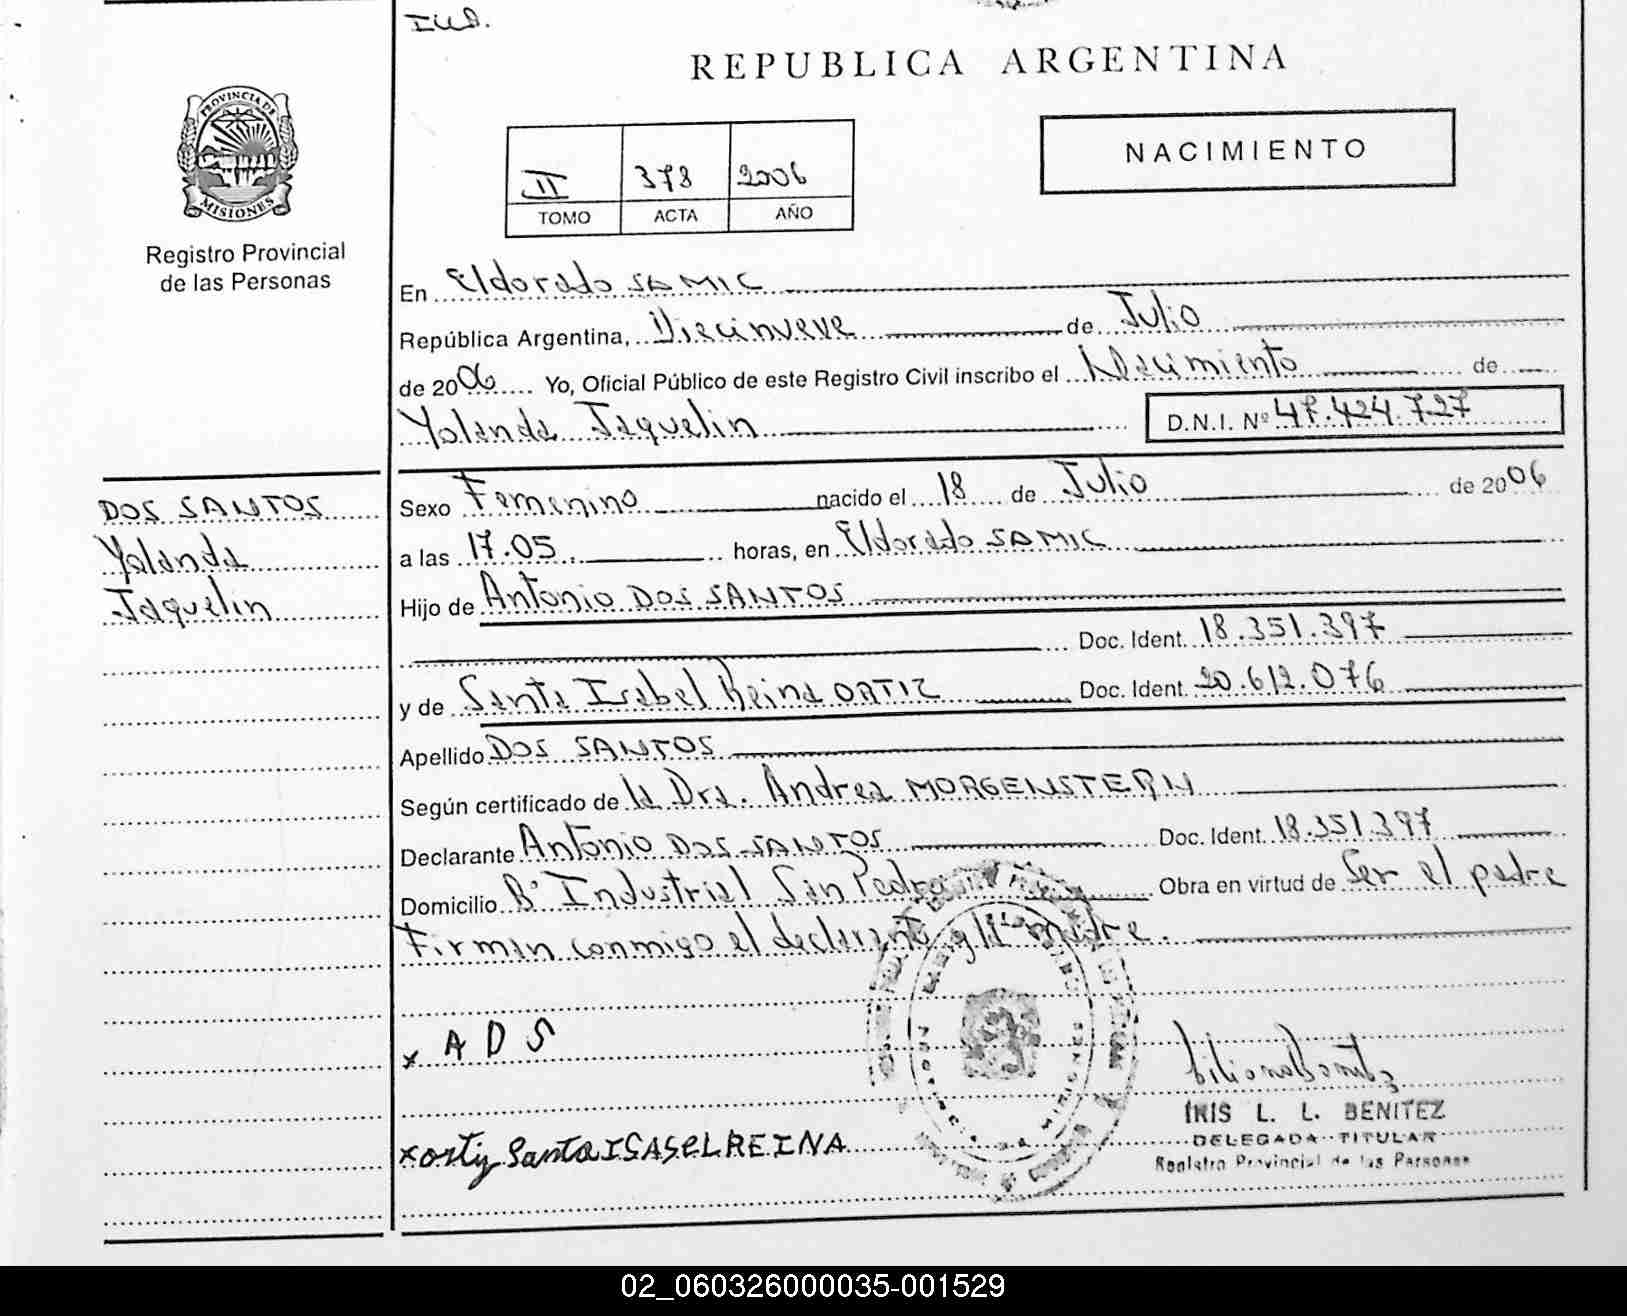 REPUBLICA ARGENTINA
PROVINCIA DE
MISIONES
Registro Provincial
de las Personas
NACIMIENTO
II 378 2006
TOMO ACTA AÑO
En Eldorado SAMIC
República Argentina, Diecinueve de Julio
de 2006 Yo, Oficial Público de este Registro Civil inscribo el Nacimiento de
Yolanda Jaquelin D.N.I. Nº 47.424.727
DOS SANTOS
Yolanda
Jaquelin
Sexo Femenino nacido el 18 de Julio de 2006
a las 17.05 horas, en Eldorado SAMIC
Hijo de Antonio DOS SANTOS
Doc. Ident. 18.351.397
y de Santa Isabel Reina ORTIZ Doc. Ident. 20.612.076
Apellido DOS SANTOS
Según certificado de la Dra. Andrea MORGENSTERN
Declarante Antonio DOS SANTOS Doc. Ident. 18.351.397
Domicilio Bº Industrial San Pedro Obra en virtud de Ser el padre
Firman conmigo el declarante y la madre.
x A D S
x ortiz Santa ISASEL REINA
IRIS L. L. BENITEZ
DELEGADA TITULAR
Registro Provincial de las Personas
02_060326000035-001529